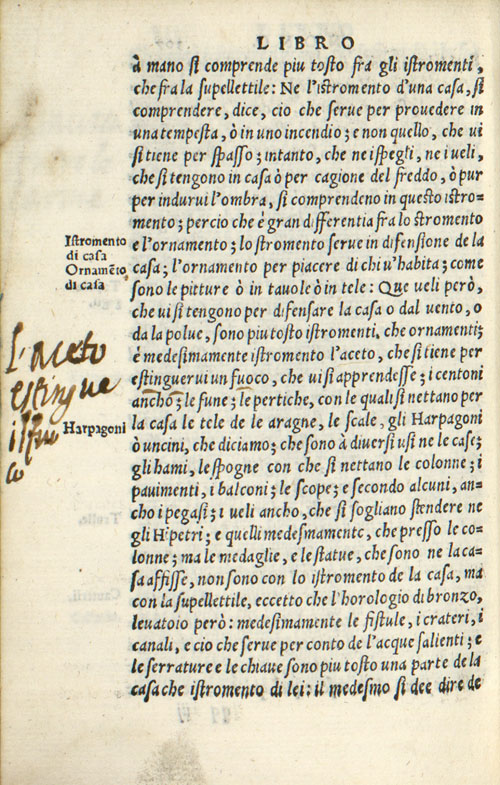 LIBRO
à mano si comprende piu tosto fra gli istromenti,
che fra la supellettile: Ne l'istromento d'una casa, si
comprendere, dice, cio che serue per prouedere in
una tempesta, ò in uno incendio; e non quello, che ui
si tiene per spasso; intanto, che ne i spegli, ne i ueli,
che si tengono in casa ò per cagione del freddo, ò pur
per indurui l'ombra, si comprendeno in questo istro-
mento; percio che è gran differentia fra lo stromento
e l'ornamento; lo stromento serue in difensione de la
casa; l'ornamento per piacere di chi u'habita; come
sono le pitture ò in tauole ò in tele: Que ueli però,
che ui si tengono per difensare la casa o dal uento, o
da la polue, sono piu tosto istromenti, che ornamenti;
è medesimamente istromento l'aceto, che si tiene per
estinguerui un fuoco, che ui si apprendesse; i centoni
anchō; le fune; le pertiche, con le quali si nettano per
la casa le tele de le aragne, le scale, gli Harpagoni
ò uncini, che diciamo; che sono à diuersi usi ne le case;
gli hami, le spogne con che si nettano le colonne; i
pauimenti, i balconi; le scope; e secondo alcuni, an-
cho i pegasi; i ueli ancho, che si sogliano stendere ne
gli Hipetri; e quelli medesmamente, che presso le co-
lonne; ma le medaglie, e le statue, che sono ne la ca-
sa affisse, non sono con lo istromento de la casa, ma
con la supellettile, eccetto che l'horologio di bronzo,
leuatoio però: medesimamente le fistule, i crateri, i
canali, e cio che serue per conto de l'acque salienti; e
le serrature e le chiaue sono piu tosto una parte de la
casa che istromento di lei: il medesmo si dee dire de
Istromento
di casa
Ornamēto
di casa
L'aceto
estingue
il fuo
co
Harpagoni